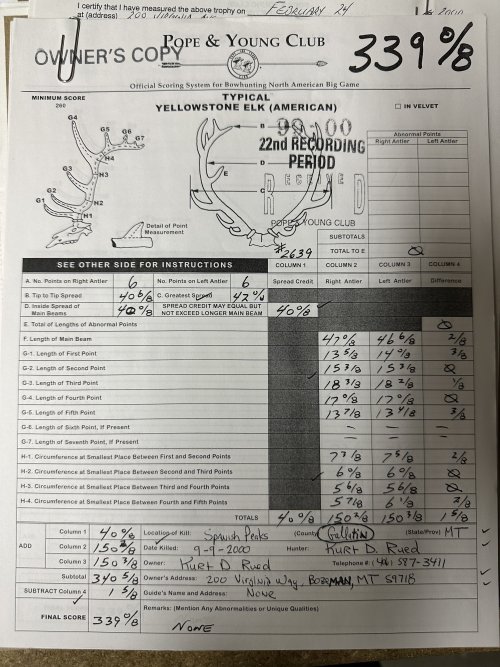 I certify that I have measured the above trophy on FEBRUARY 24
at (address) 200 VIRGINIA
OWNER'S COPY
POPE & YOUNG CLUB
339 0/8
Official Scoring System for Bowhunting North American Big Game
MINIMUM SCORE
260
TYPICAL
YELLOWSTONE ELK (AMERICAN)
☐ IN VELVET
99 00
22nd RECORDING
PERIOD
POPE & YOUNG CLUB
#2639
G4 G5 G6 G7
H4
G3 H3
G2 H2
G1 H1
B
D
E
C
Detail of Point
Measurement
Abnormal Points
Right Antler Left Antler
SUBTOTALS
TOTAL TO E 0
SEE OTHER SIDE FOR INSTRUCTIONS COLUMN 1 COLUMN 2 COLUMN 3 COLUMN 4
A. No. Points on Right Antler 6 No. Points on Left Antler 6 Spread Credit Right Antler Left Antler Difference
B. Tip to Tip Spread 40 6/8 C. Greatest Spread
D. Inside Spread of Main Beams 40 0/8 SPREAD CREDIT MAY EQUAL BUT NOT EXCEED LONGER MAIN BEAM 40 0/8
E. Total of Lengths of Abnormal Points 0
F. Length of Main Beam 47 0/8 46 6/8 2/8
G-1. Length of First Point 13 5/8 14 0/8 3/8
G-2. Length of Second Point 15 3/8 15 3/8 0
G-3. Length of Third Point 18 3/8 18 2/8 1/8
G-4. Length of Fourth Point 17 0/8 17 0/8 0
G-5. Length of Fifth Point 13 7/8 13 4/8 3/8
G-6. Length of Sixth Point, If Present – –
G-7. Length of Seventh Point, If Present – –
H-1. Circumference at Smallest Place Between First and Second Points 7 7/8 7 5/8 2/8
H-2. Circumference at Smallest Place Between Second and Third Points 6 0/8 6 0/8 0
H-3. Circumference at Smallest Place Between Third and Fourth Points 5 6/8 5 6/8 0
H-4. Circumference at Smallest Place Between Fourth and Fifth Points 5 7/8 6 1/8 2/8
TOTALS 40 0/8 150 2/8 150 3/8 1 5/8
ADD
Column 1 40 0/8 Location of Kill: Spanish Peaks (County) Gallatin (State/Prov) MT
Column 2 150 2/8 Date Killed: 9-9-2000 Hunter: KURT D. Rued
Column 3 150 3/8 Owner: KURT D. Rued Telephone #: (406) 587-3411
Subtotal 340 5/8 Owner's Address: 200 Virginia Way, BOZEMAN, MT 59718
SUBTRACT Column 4 1 5/8 Guide's Name and Address: None
FINAL SCORE 339 0/8 Remarks: (Mention Any Abnormalities or Unique Qualities)
NONE